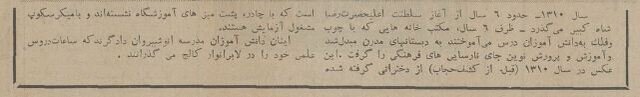 سال ۱۳۱۰- حدود ۶ سال از آغاز سلطنت اعلیحضرت رضا
شاه کبیر می‌گذرد - ظرف ۶ سال، مکتب خانه هایی که با چوب
وفلك به‌دانش آموزان درس می‌آموختند به دبستانهای مدرن مبدل‌شد
وآموزش و پرورش نوین جای نارسایی های فرهنگی را گرفت . این
عکس در سال ۱۳۱۰ (قبل از کشف‌حجاب) از دخترانی گرفته شده
است که با چادر، پشت میز های آموزشگاه نشسته‌اند و بامیکرسکوپ
مشغول آزمایش هستند.
اینان دانش آموزان مدرسه انوشیروان دادگرندکه ساعات‌دروس
علمی خود را در لابراتوار کالج می گذرانند .